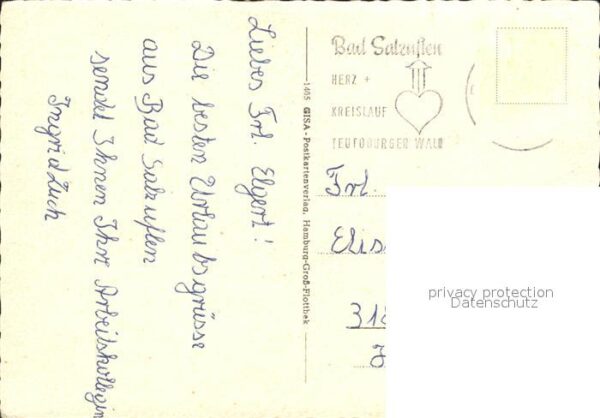 Liebes Frl. Elgert!
Die besten Urlaubsgrüsse
aus Bad Salzuflen
sendet Ihnen Ihre Arbeitskollegin
Ingrid Zuch
1485 GISA-Postkartenverlag, Hamburg-Groß-Flottbek
Bad Salzuflen
HERZ +
KREISLAUF
TEUTOBURGER WALD
Frl.
Elis
318
privacy protection
Datenschutz